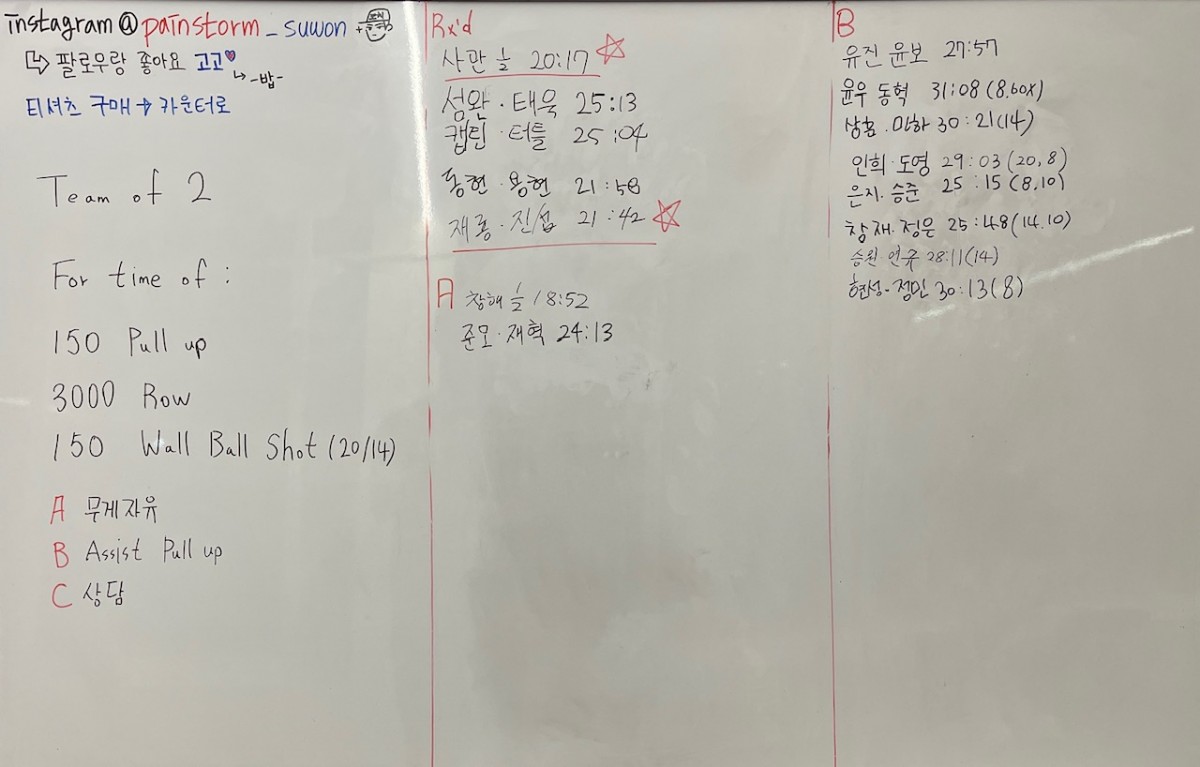 instagram@painstorm_suwon
팔로우랑 좋아요 고고
-밥-
티셔츠 구매 → 카운터로
Team of 2
For time of :
150 Pull up
3000 Row
150 Wall Ball Shot (20/14)
A 무게자유
B Assist Pull up
C 상담
Rx'd
사만 ½ 20:17
성완·태욱 25:13
캡틴·터틀 25:04
동현·용현 21:58
재롱·진섭 21:42
A 창해 ½ 18:52
준모·재혁 24:13
B
유진 윤보 27:57
윤우 동혁 31:08 (8,60x)
30:21(14)
인희·도영 29:03 (20,8)
은지·승준 25:15 (8,10)
창재·정은 25:48(14.10)
승원 28:11(14)
현성-정민 30:13(8)